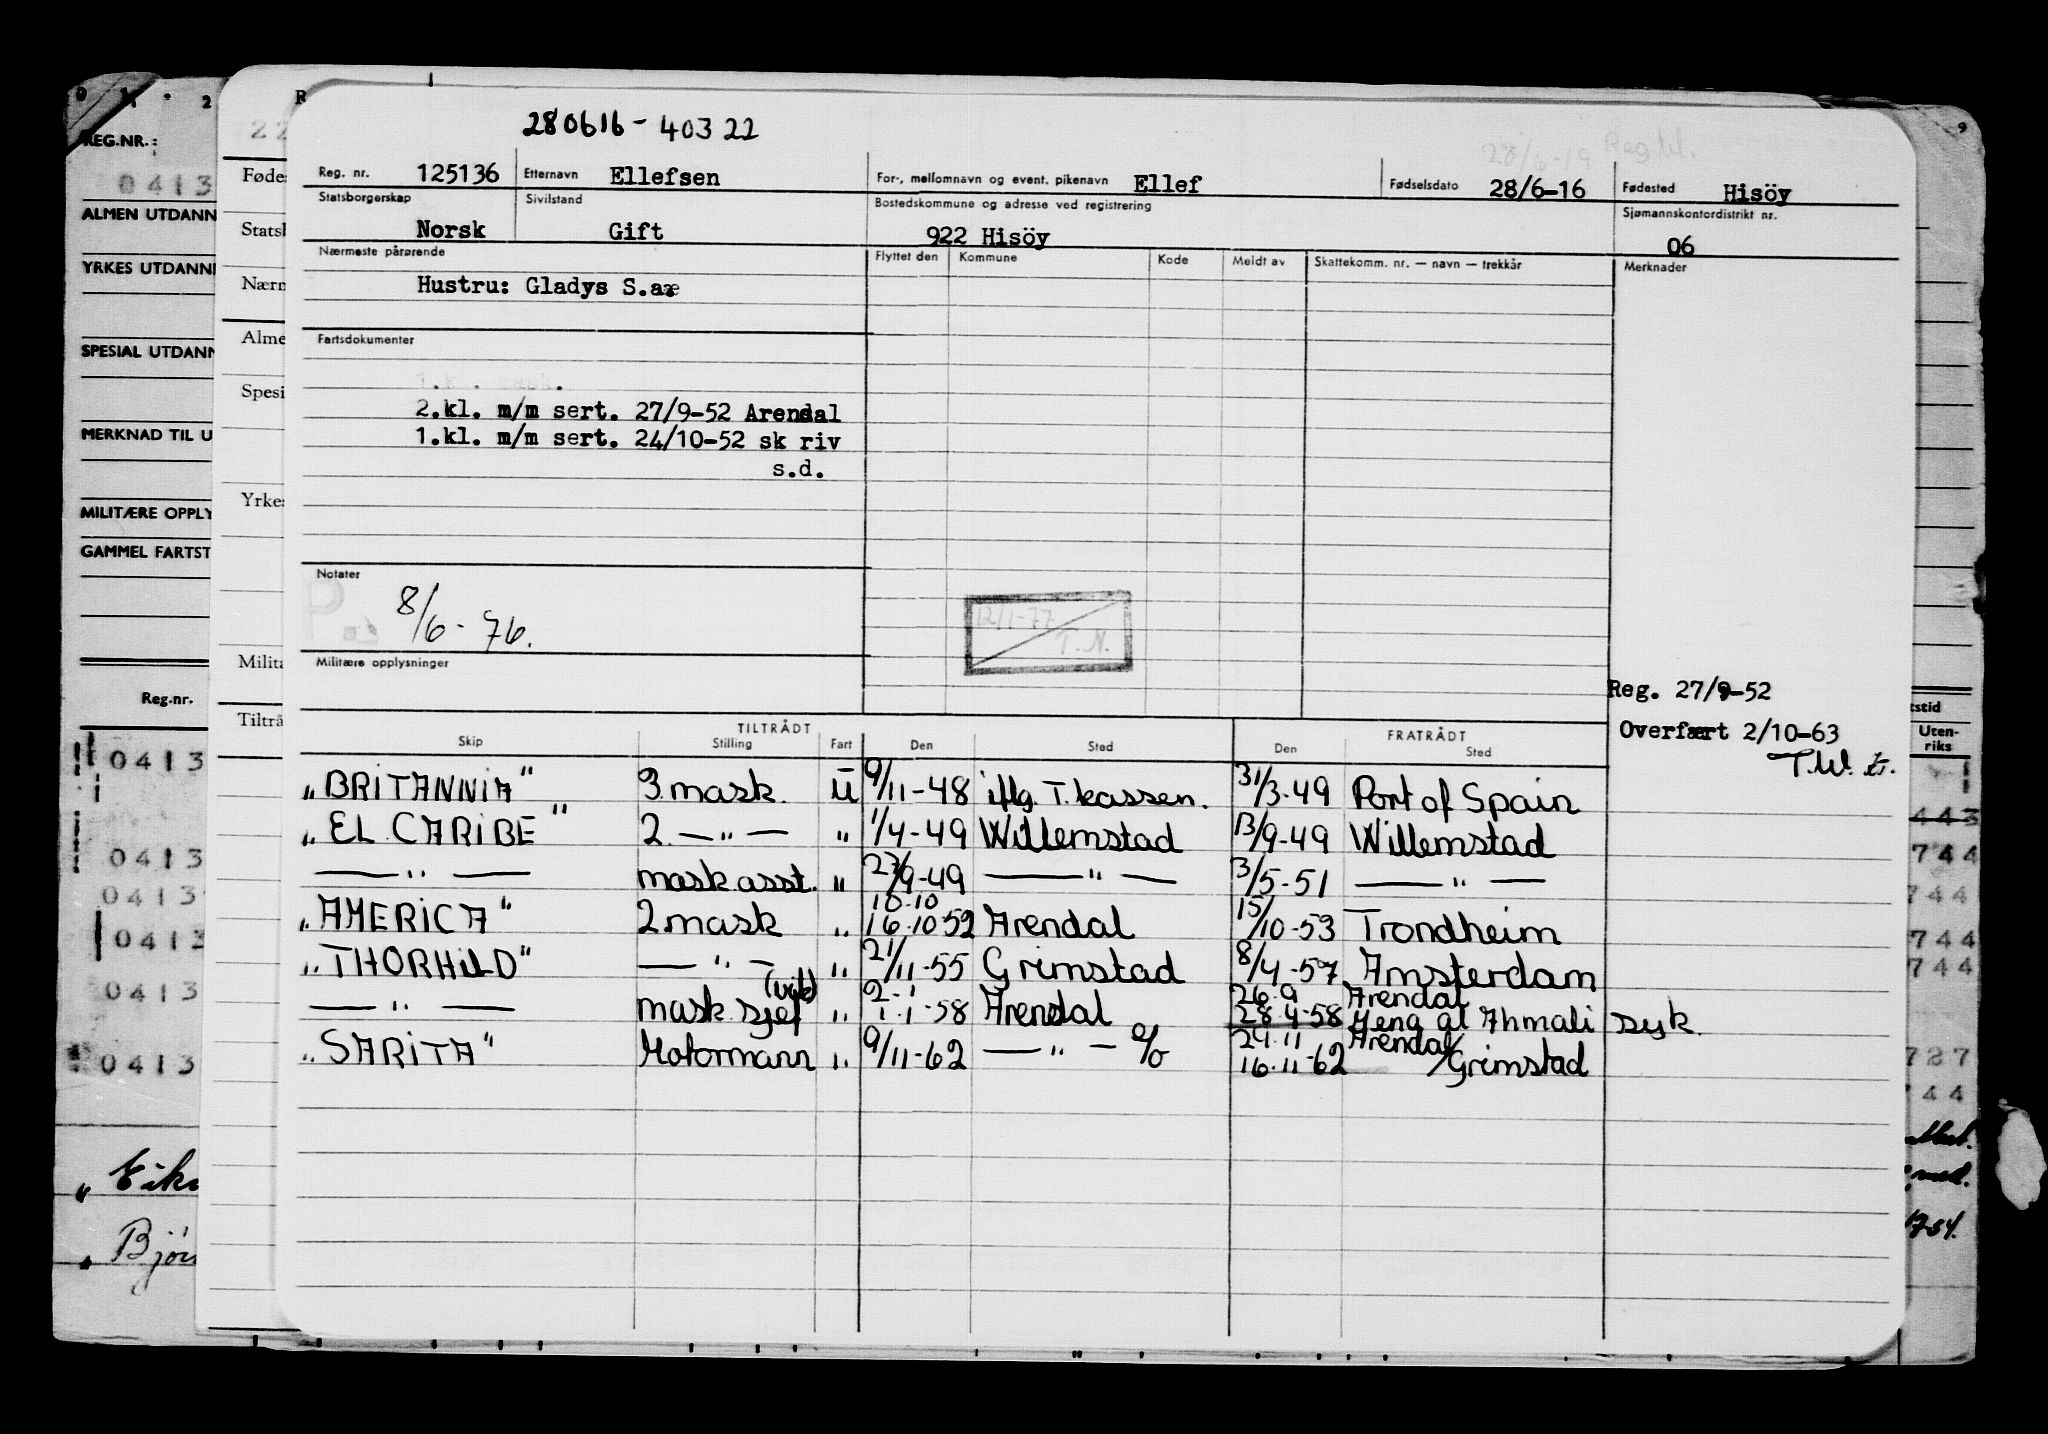 280616-40322
Reg. nr. 125136 Etternavn Ellefsen For-, mellomnavn og event. pikenavn Ellef Fødselsdato 28/6-16 Fødested Hisöy
Statsborgerskap Sivilstand Bostedskommune og adresse ved registrering Sjømannskontordistrikt nr.
Norsk Gift 922 Hisöy 06
Nærmeste pårørende Flyttet den Kommune Kode Meldt av Skattekomm. nr. — navn — trekkår Merknader
Hustru: Gladys S.aæ
Fartsdokumenter
2.kl. m/m sert. 27/9-52 Arendal
1.kl. m/m sert. 24/10-52 sk riv
s.d.
Notater
8/6-76.
12/1-77
T.N.
Militære opplysninger
Reg. 27/9-52
Overført 2/10-63
TILTRÅDT FRATRÅDT
Skip Stilling Fart Den Sted Den Sted
„BRITANNIA" 3.mask. U 9/11-48 iflg. T.kassen. 31/3-49 Port of Spain
„EL CARIBE" 2. —"— " 1/4-49 Willemstad 13/9-49 Willemstad
—"— mask asst. " 27/9-49 —"— 3/5-51 —"—
10.10
„AMERICA" 2 mask " 16.10-52 Arendal 15/10-53 Trondheim
„THORHILD" —"— " 21/11-55 Grimstad 8/4-57 Amsterdam
(vik) 2.1 26.9 Arendal
—"— mask sjef " 1.1-58 Arendal 28.4-58 Mena al Ahmadi syk.
24.11 Arendal
„SARITA" Motormann " 9/11-62 —"— % 16.11-62 /Grimstad
REG.NR.:
0413
ALMEN UTDANN
YRKES UTDANN
SPESIAL UTDANN
MERKNAD TIL U
MILITÆRE OPPLY
GAMMEL FARTST
Reg.nr.
0413
0413
0413
0413
0413
0413
„ Eik
„ Bjør
Fødes
Stats
Nærm
Alme
Spesi
Yrkes
Milita
Tiltrå
tstid
Uten-
riks
443
744
744
744
744
727
44